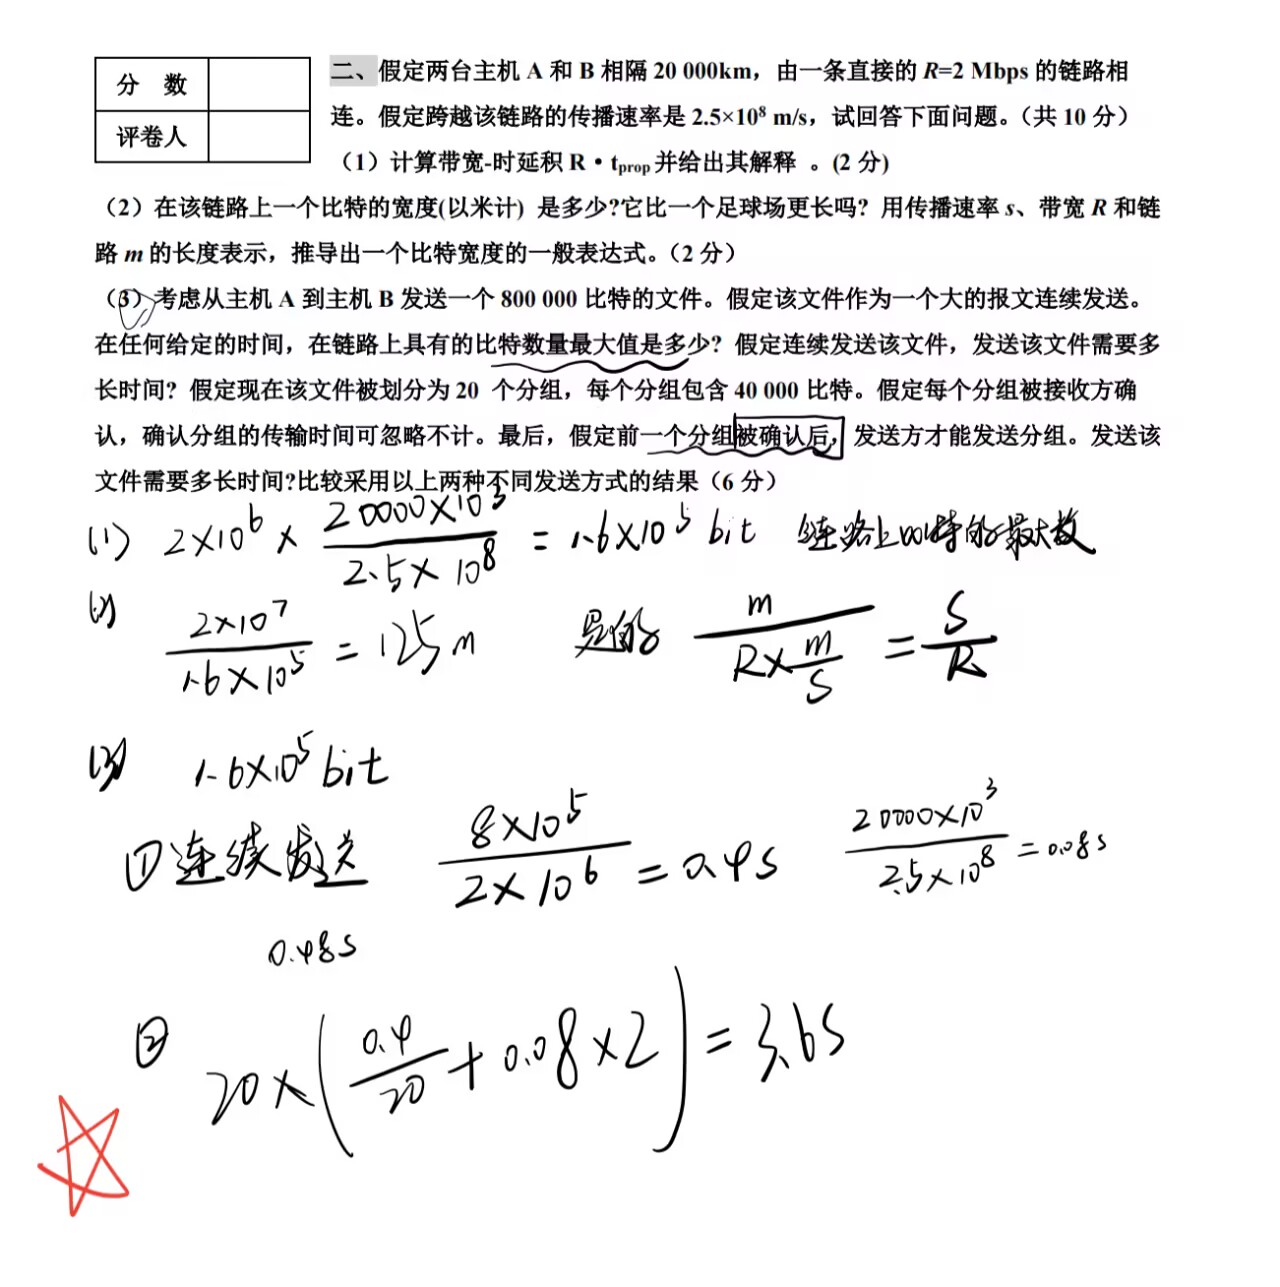 分 数
评卷人
二、假定两台主机 A 和 B 相隔 20 000km，由一条直接的 R=2 Mbps 的链路相
连。假定跨越该链路的传播速率是 2.5×10⁸ m/s，试回答下面问题。（共 10 分）
（1）计算带宽-时延积 R·tprop 并给出其解释 。(2 分)
（2）在该链路上一个比特的宽度(以米计) 是多少?它比一个足球场更长吗? 用传播速率 s、带宽 R 和链
路 m 的长度表示，推导出一个比特宽度的一般表达式。（2 分）
（3）考虑从主机 A 到主机 B 发送一个 800 000 比特的文件。假定该文件作为一个大的报文连续发送。
在任何给定的时间，在链路上具有的比特数量最大值是多少? 假定连续发送该文件，发送该文件需要多
长时间? 假定现在该文件被划分为 20 个分组，每个分组包含 40 000 比特。假定每个分组被接收方确
认，确认分组的传输时间可忽略不计。最后，假定前一个分组被确认后，发送方才能发送分组。发送该
文件需要多长时间?比较采用以上两种不同发送方式的结果（6 分）
(1) 2×10⁶ × 20000×10³ / 2.5×10⁸ = 1.6×10⁵ bit 链路上比特的最大数
(2) 2×10⁷ / 1.6×10⁵ = 125m 是的 m / R×m/S = S/R
(3) 1.6×10⁵ bit
①连续发送 8×10⁵ / 2×10⁶ = 0.4s 20000×10³ / 2.5×10⁸ = 0.08s
0.48s
② 20×(0.4/20 + 0.08×2) = 3.6s